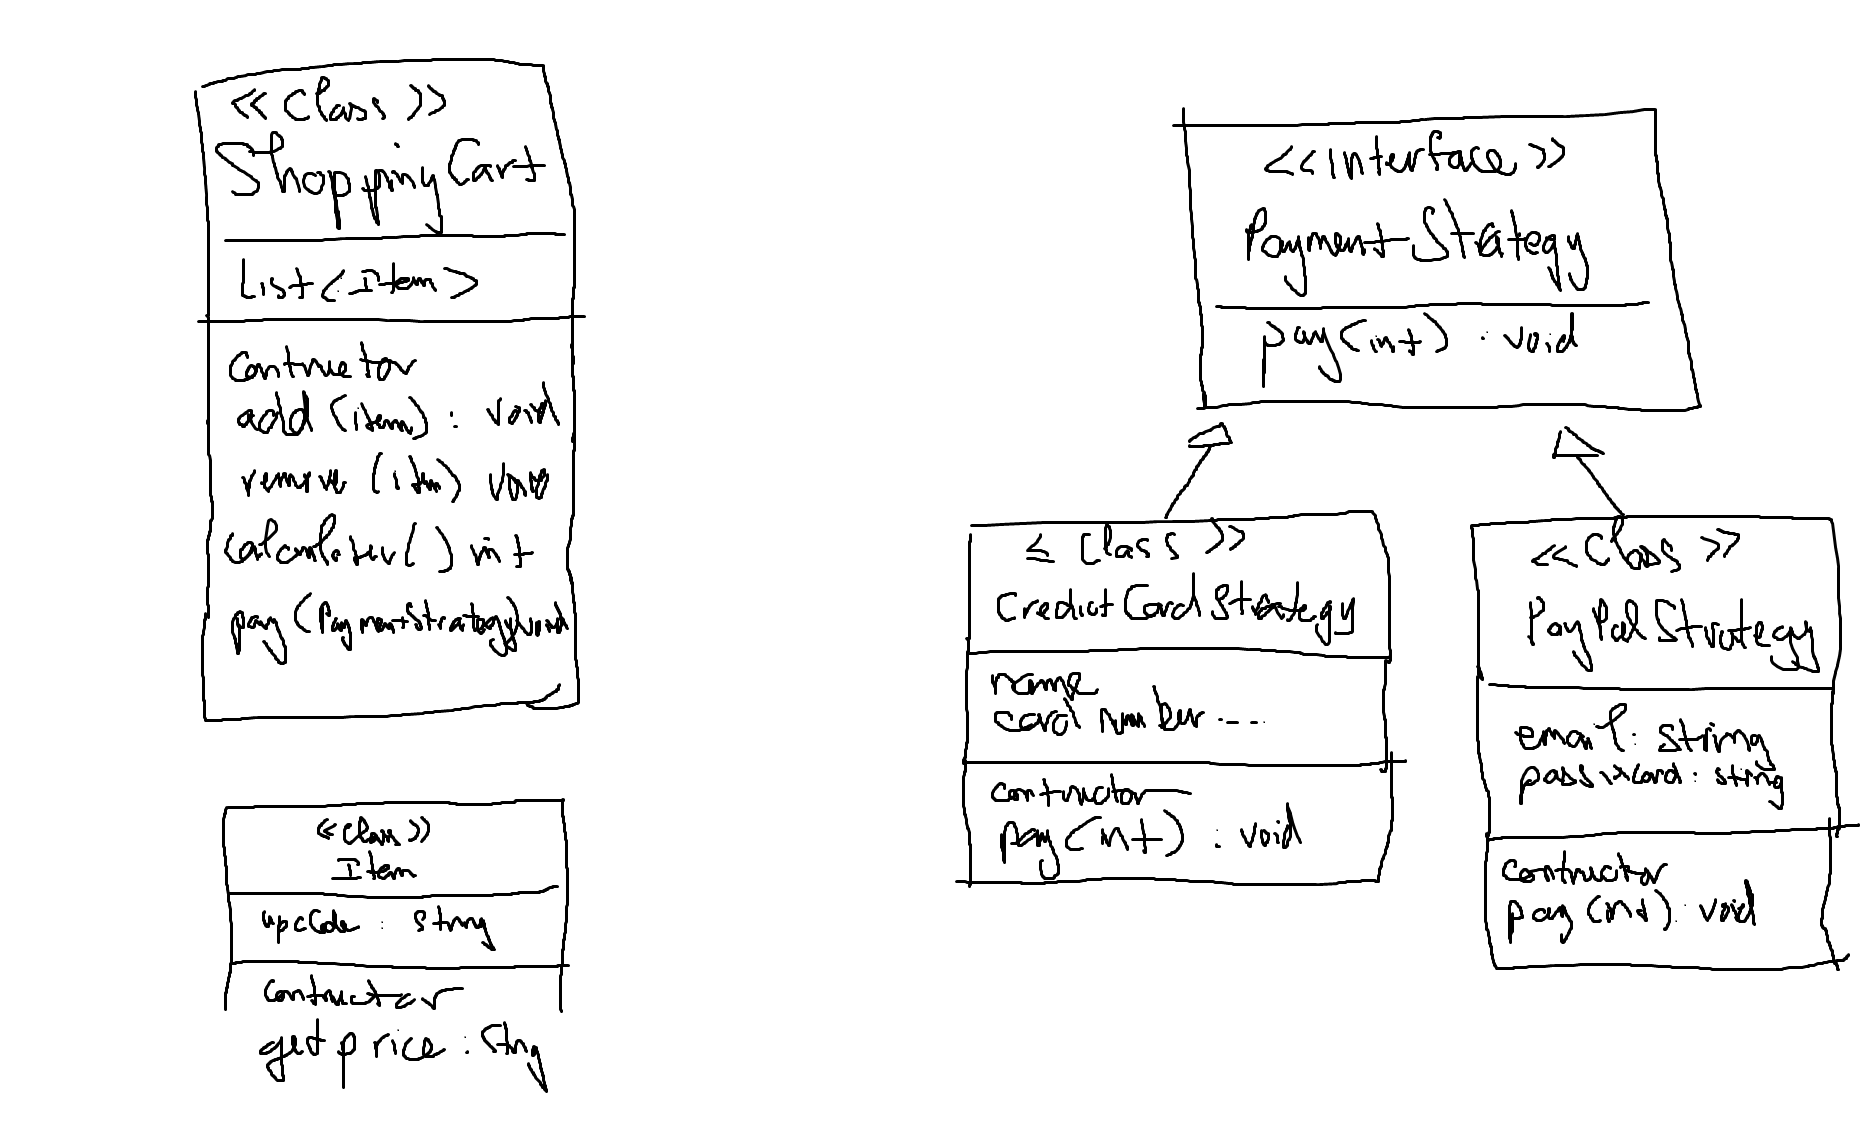 << Class >>
ShoppingCart
List<Item>
Contructor
add (item) : void
remove (item) void
pay (PaymentStrategy) void
<< Class >>
Item
upcCode : String
Contructor
get price : Stng
<< Interface >>
PaymentStrategy
pay(int) : void
< Class >>
CredictCardStrategy
name
card number ---
contructor
pay (int) : void
<< Class >>
PayPalStrategy
email : string
password : string
Contructor
pay (int) : void